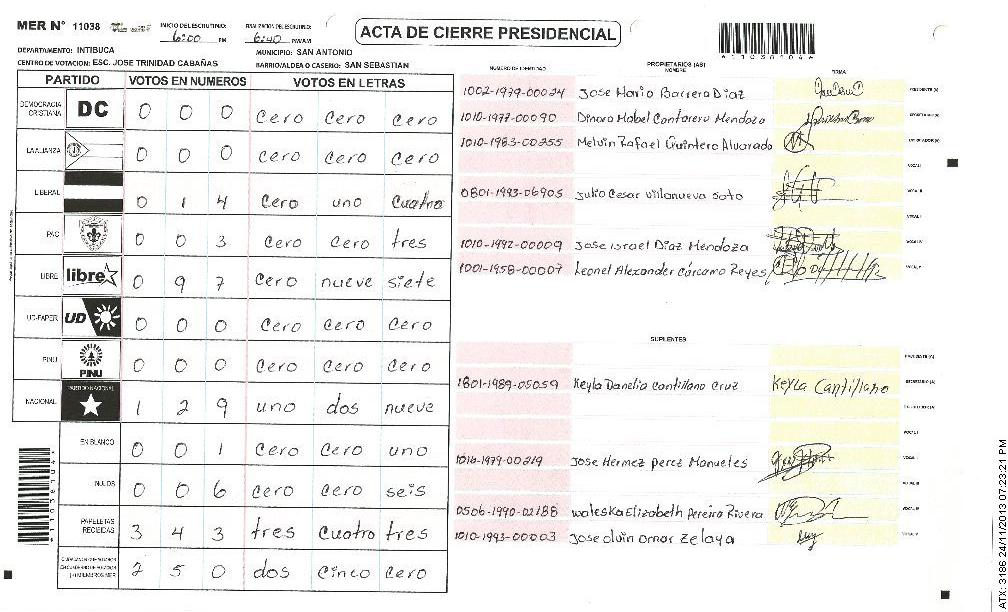 MER N° 11038
INICIO DEL ESCRUTINIO: 6:00 PM
FINALIZACION DEL ESCRUTINIO: 6:40 PM/AM
ACTA DE CIERRE PRESIDENCIAL
DEPARTAMENTO: INTIBUCA
MUNICIPIO: SAN ANTONIO
CENTRO DE VOTACION: ESC. JOSE TRINIDAD CABAÑAS
BARRIO/ALDEA O CASERIO: SAN SEBASTIAN
PARTIDO VOTOS EN NUMEROS VOTOS EN LETRAS
DEMOCRACIA CRISTIANA DC 0 0 0 cero cero cero
LA ALIANZA 0 0 0 cero cero cero
LIBERAL 0 1 4 cero uno cuatro
PAC 0 0 3 cero cero tres
LIBRE libre 0 9 7 cero nueve siete
UD-FAPER UD 0 0 0 cero cero cero
PINU PINU 0 0 0 cero cero cero
NACIONAL PARTIDO NACIONAL 1 2 9 uno dos nueve
EN BLANCO 0 0 1 cero cero uno
NULOS 0 0 6 cero cero seis
PAPELETAS RECIBIDAS 3 4 3 tres cuatro tres
2 5 0 dos cinco cero
NUMERO DE IDENTIDAD PROPIETARIOS (AS) NOMBRE FIRMA
1002-1979-00024 Jose Mario Barrera Diaz PRESIDENTE (A)
1010-1977-00090 Dinora Mabel Contarero Mendoza SECRETARIO (A)
1010-1983-00255 Melvin Rafael Quintero Alvarado ESCRUTADOR (A)
VOCAL I
0801-1993-06905 Julio Cesar Villanueva Soto VOCAL II
1010-1992-00009 Jose israel Diaz Mendoza VOCAL IV
1001-1958-00007 Leonel Alexander cárcamo Reyes VOCAL V
SUPLENTES
PRESIDENTE (A)
1801-1989-05059 Keyla Danelia cantillano Cruz Keyla Cantillano SECRETARIO (A)
ESCRUTADOR (A)
VOCAL I
1016-1979-00219 Jose Hermez perez Manueles
0506-1990-02188 waleska Elizabeth Pereira Rivera
1010-1993-00003 Jose olvin omar Zelaya VOCAL V
ATX: 3186 24/11/2013 07:23:21 PM